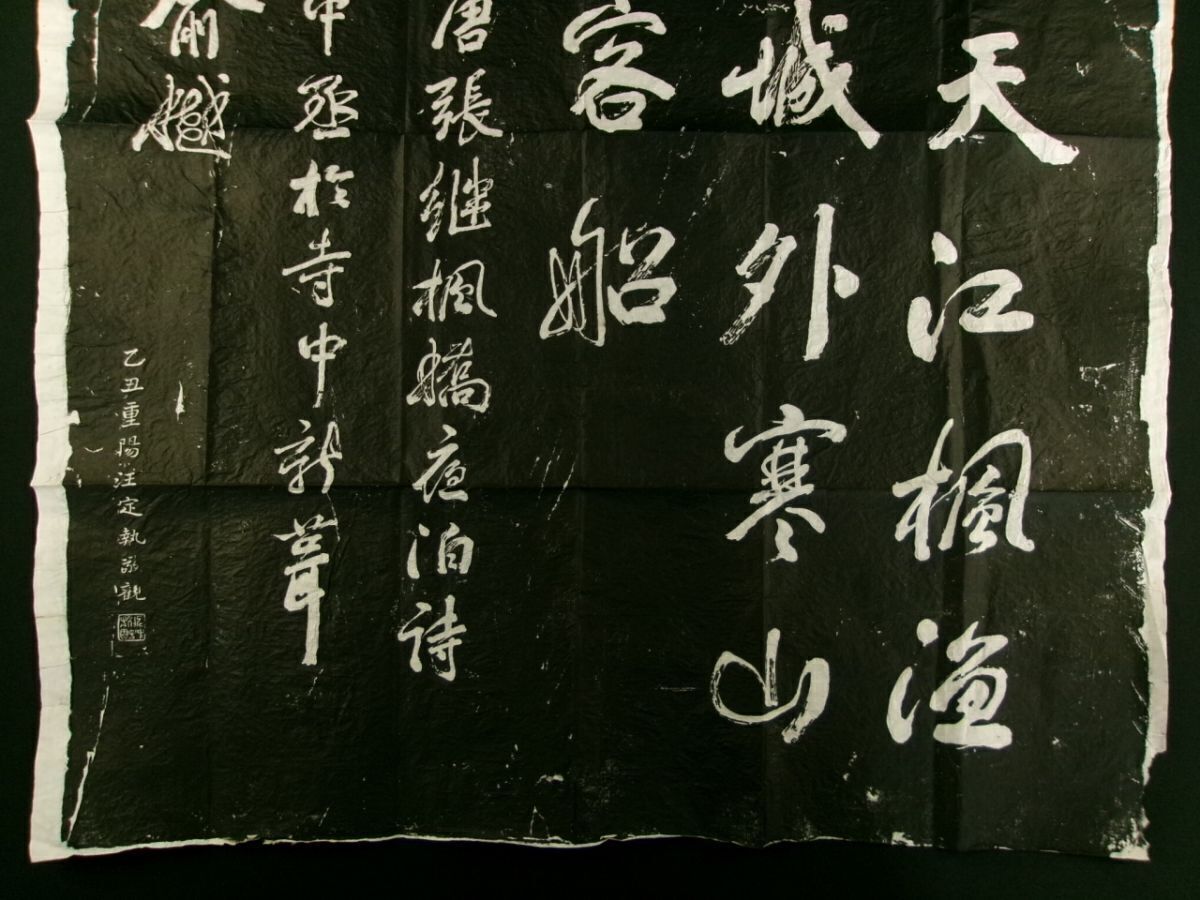 天江楓漁
城外寒山
客船
唐張継楓橋夜泊詩
中丞於寺中新葺
俞樾
乙丑重陽汪定執敬觀